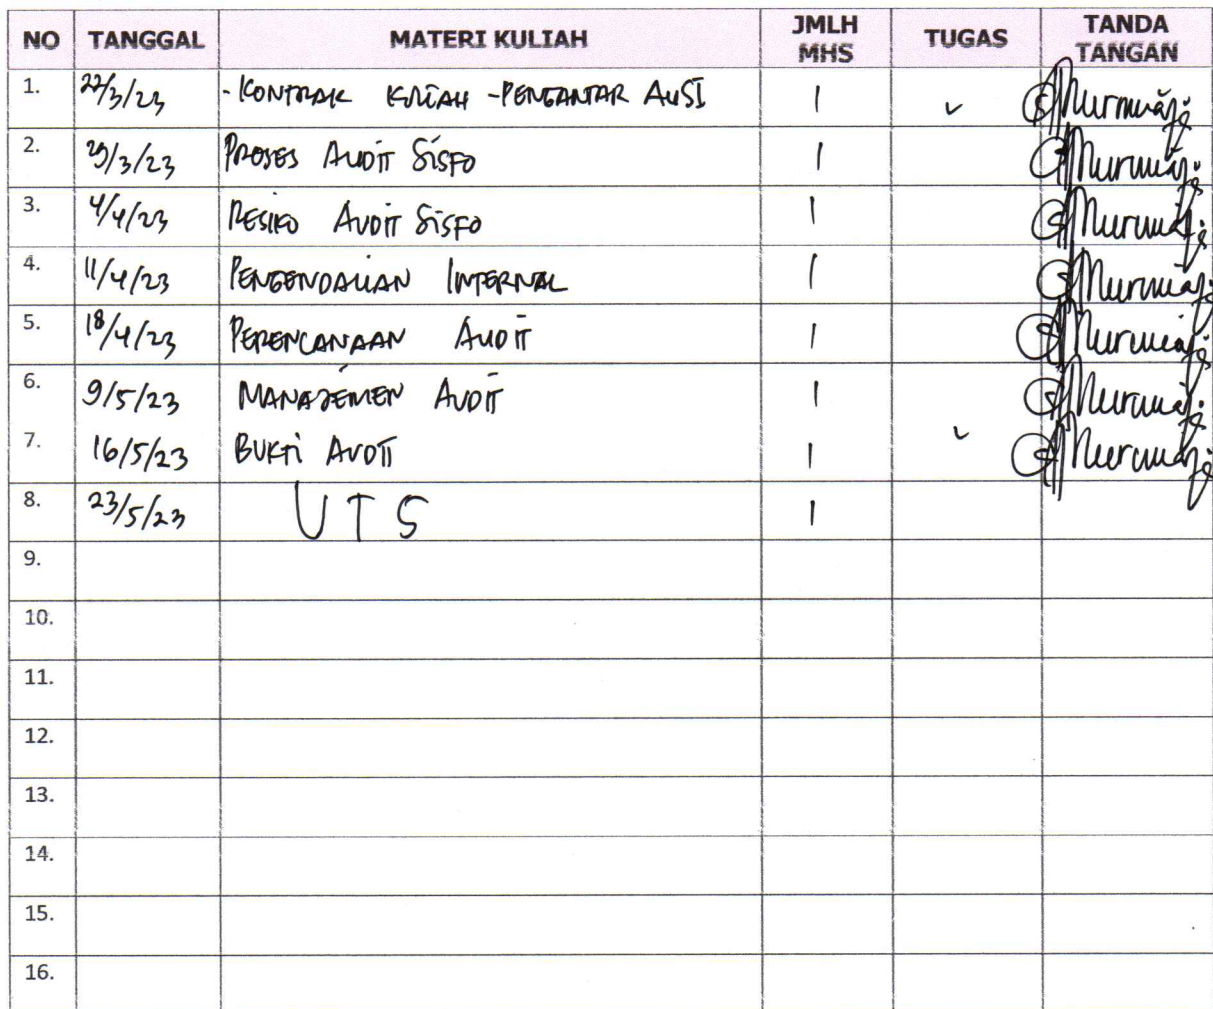 NO TANGGAL MATERI KULIAH JMLH MHS TUGAS TANDA TANGAN
1. 22/3/23 - KONTRAK KULIAH - PENGANTAR AUSI 1 ✓
2. 29/3/23 PROSES AUDIT SISFO 1
3. 4/4/23 RESIKO AUDIT SISFO 1
4. 11/4/23 PENGENDALIAN INTERNAL 1
5. 18/4/23 PERENCANAAN AUDIT 1
6. 9/5/23 MANAJEMEN AUDIT 1
7. 16/5/23 BUKTI AUDIT 1 ✓
8. 23/5/23 UTS 1
9.
10.
11.
12.
13.
14.
15.
16.